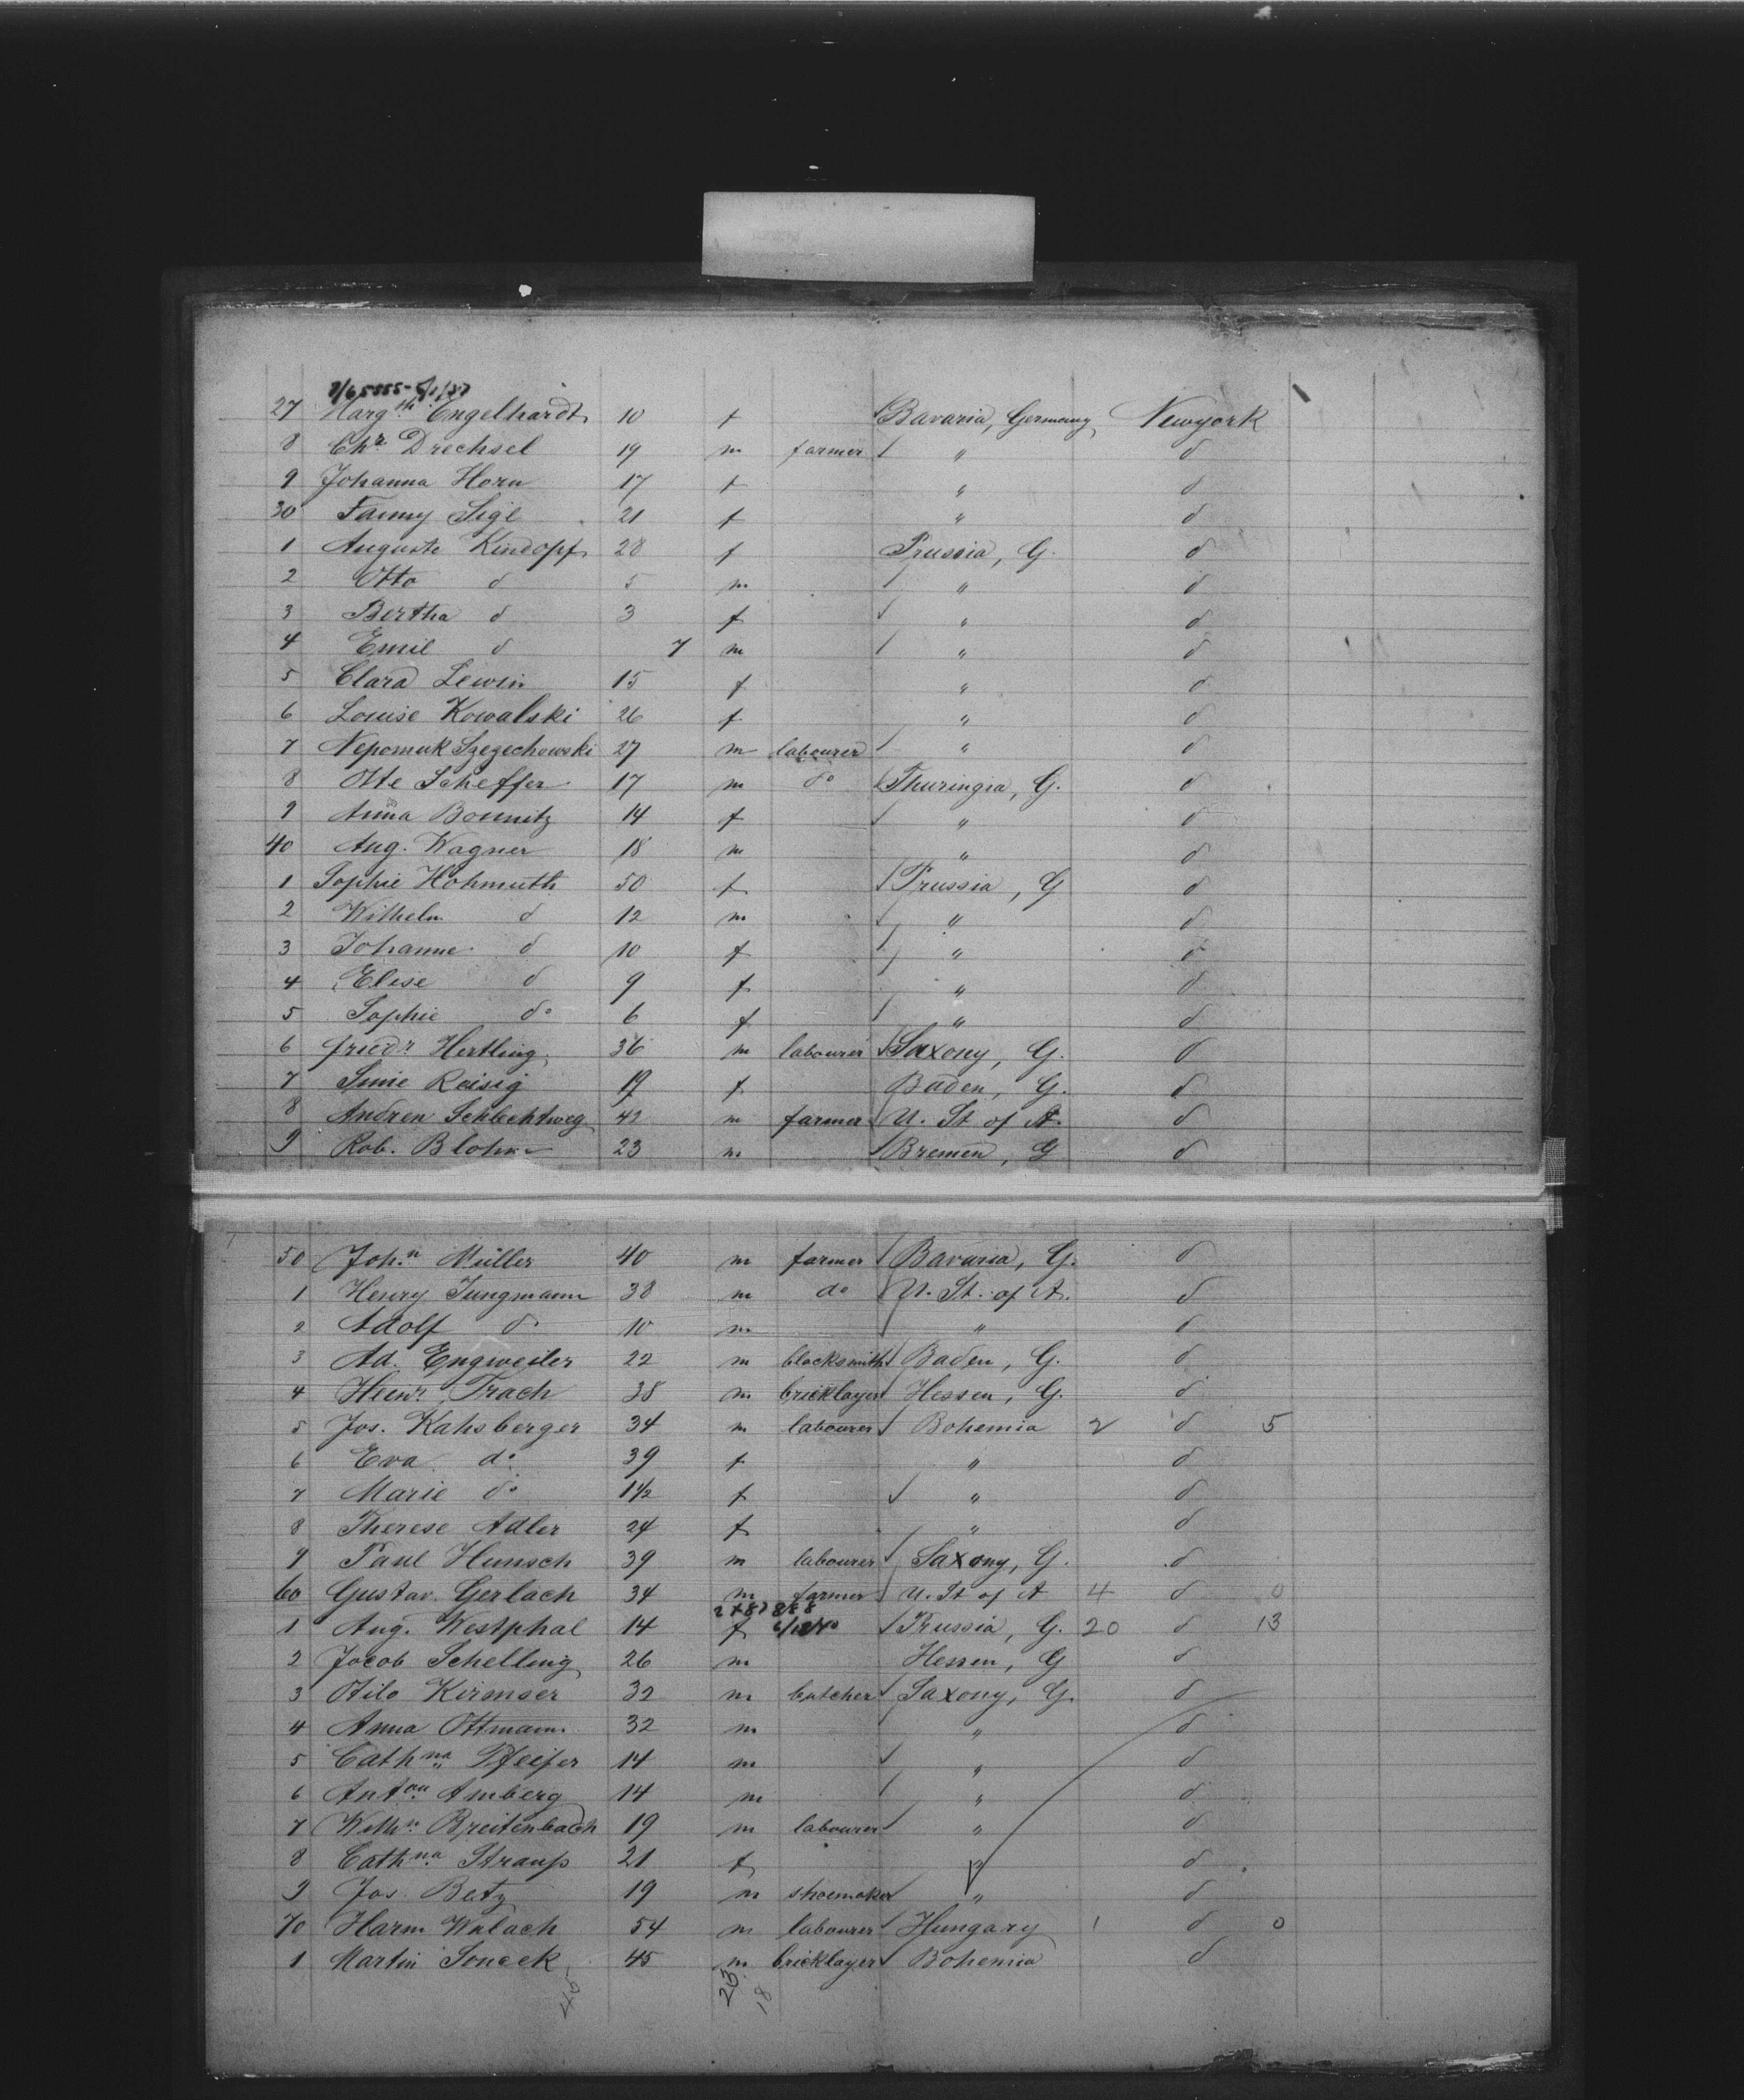 27 Marg.th Engelhardt 10 f Bavaria, Germany Newyork
8 Chr. Drechsel 19 m farmer " d
9 Johanna Horn 17 f " d
30 Fanny Sigl 21 f " d
1 Auguste Kindopf 28 f Prussia, G. d
2 Otto d 5 m " d
3 Bertha d 3 f " d
4 Emil d 7 m " d
5 Clara Lewin 15 f " d
6 Louise Kowalski 26 f " d
7 Nepomuk Szegechowski 27 m labourer " d
8 Otte Scheffer 17 m do Thuringia, G. d
9 Anna Bounitz 14 f " d
40 Aug. Wagner 18 m " d
1 Sophie Hohmuth 50 f Prussia, G d
2 Wilhelm d 12 m " d
3 Johanne d 10 f " d
4 Elise d 9 f " d
5 Sophie do 6 f " d
6 Friedr Hertling 36 m labourer Saxony, G. d
7 Reisig 19 f Baden, G. d
8 Andren Schlechtweg 42 m farmer U. St of A. d
9 Rob. Blohm 23 m Bremen, G d
50 Joh.n Müller 40 m farmer Bavaria, G. d
1 Henry Jungmann 38 m do U. St. of A. d
2 Adolf d 10 m " d
3 Ad. Engweiler 22 m blacksmith Baden, G. d
4 Heinr. Trach 38 m bricklayer Hessen, G. d
5 Jos. Kahsberger 34 m labourer Bohemia 2 d 5
6 Eva do 39 f " d
7 Marie do 1½ f " d
8 Therese Adler 24 f " d
9 Paul Hunsch 39 m labourer Saxony, G. d
60 Gustav Gerlach 34 m farmer U. St of A 4 d 0
1 Aug. Westphal 14 f Prussia, G. 20 d 13
2 Jacob Schelling 26 m Hessen, G d
3 Otilo Kirmser 32 m butcher Saxony, G. d
4 Anna Ottmann 32 m " d
5 Cath.na Pfeifer 14 m " d
6 Amberg 14 m " d
7 Wilh. Breitenbach 19 m labourer " d
8 Cath.na Strauss 21 f " d
9 Jos. Betz 19 m shoemaker " d
70 Harm Walach 54 m labourer Hungary 1 d 0
1 Martin Soucek 45 m bricklayer Bohemia d
45 25 18